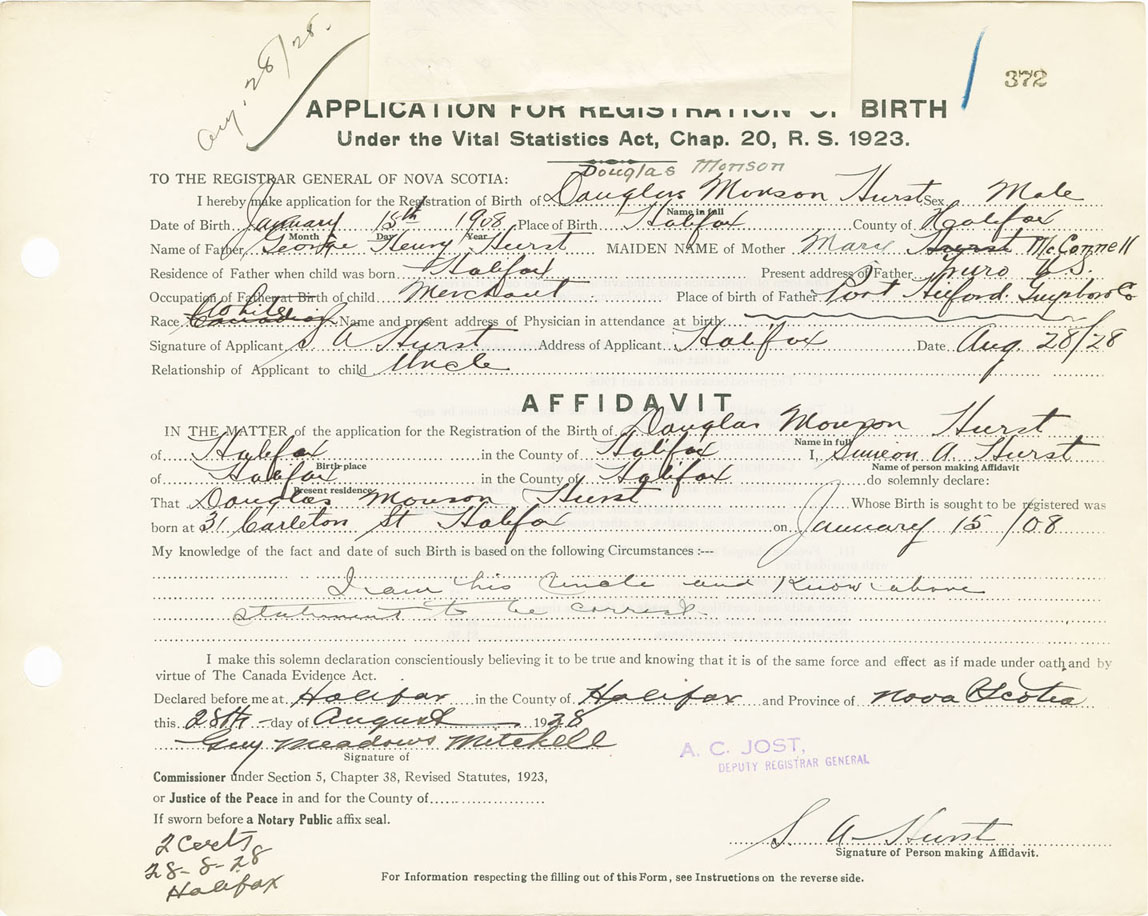 Aug. 28/28.
372
APPLICATION FOR REGISTRATION OF BIRTH
Under the Vital Statistics Act, Chap. 20, R. S. 1923.
Douglas Monson
TO THE REGISTRAR GENERAL OF NOVA SCOTIA:
I hereby make application for the Registration of Birth of Douglas Monson Hurst Sex Male
Name in full
Date of Birth January 15th 1908 Place of Birth Halifax County of Halifax
Month Day Year
Name of Father George Henry Hurst MAIDEN NAME of Mother Mary Hurst McConnell
Residence of Father when child was born Halifax Present address of Father Truro N.S.
Occupation of Father at Birth of child Merchant Place of birth of Father Port Hilford Guysboro Co
Race White Canadian Name and present address of Physician in attendance at birth
Signature of Applicant S A Hurst Address of Applicant Halifax Date Aug. 28/28
Relationship of Applicant to child Uncle
AFFIDAVIT
IN THE MATTER of the application for the Registration of the Birth of Douglas Monson Hurst
Name in full
of Halifax in the County of Halifax I, Simeon A. Hurst
Birth place Name of person making Affidavit
of Halifax in the County of Halifax do solemnly declare:
Present residence
That Douglas Monson Hurst Whose Birth is sought to be registered was
born at 31 Carleton St Halifax on January 15 /08
My knowledge of the fact and date of such Birth is based on the following Circumstances :---
I am his Uncle and Know above
statement to be correct.
I make this solemn declaration conscientiously believing it to be true and knowing that it is of the same force and effect as if made under oath and by
virtue of The Canada Evidence Act.
Declared before me at Halifax in the County of Halifax and Province of Nova Scotia
this 28th day of August 1928
Guy Meadows Mitchell
Signature of
A. C. JOST,
DEPUTY REGISTRAR GENERAL
Commissioner under Section 5, Chapter 38, Revised Statutes, 1923,
or Justice of the Peace in and for the County of
If sworn before a Notary Public affix seal.
2 Certs
28-8-28
Halifax
S. A Hurst
Signature of Person making Affidavit.
For Information respecting the filling out of this Form, see Instructions on the reverse side.